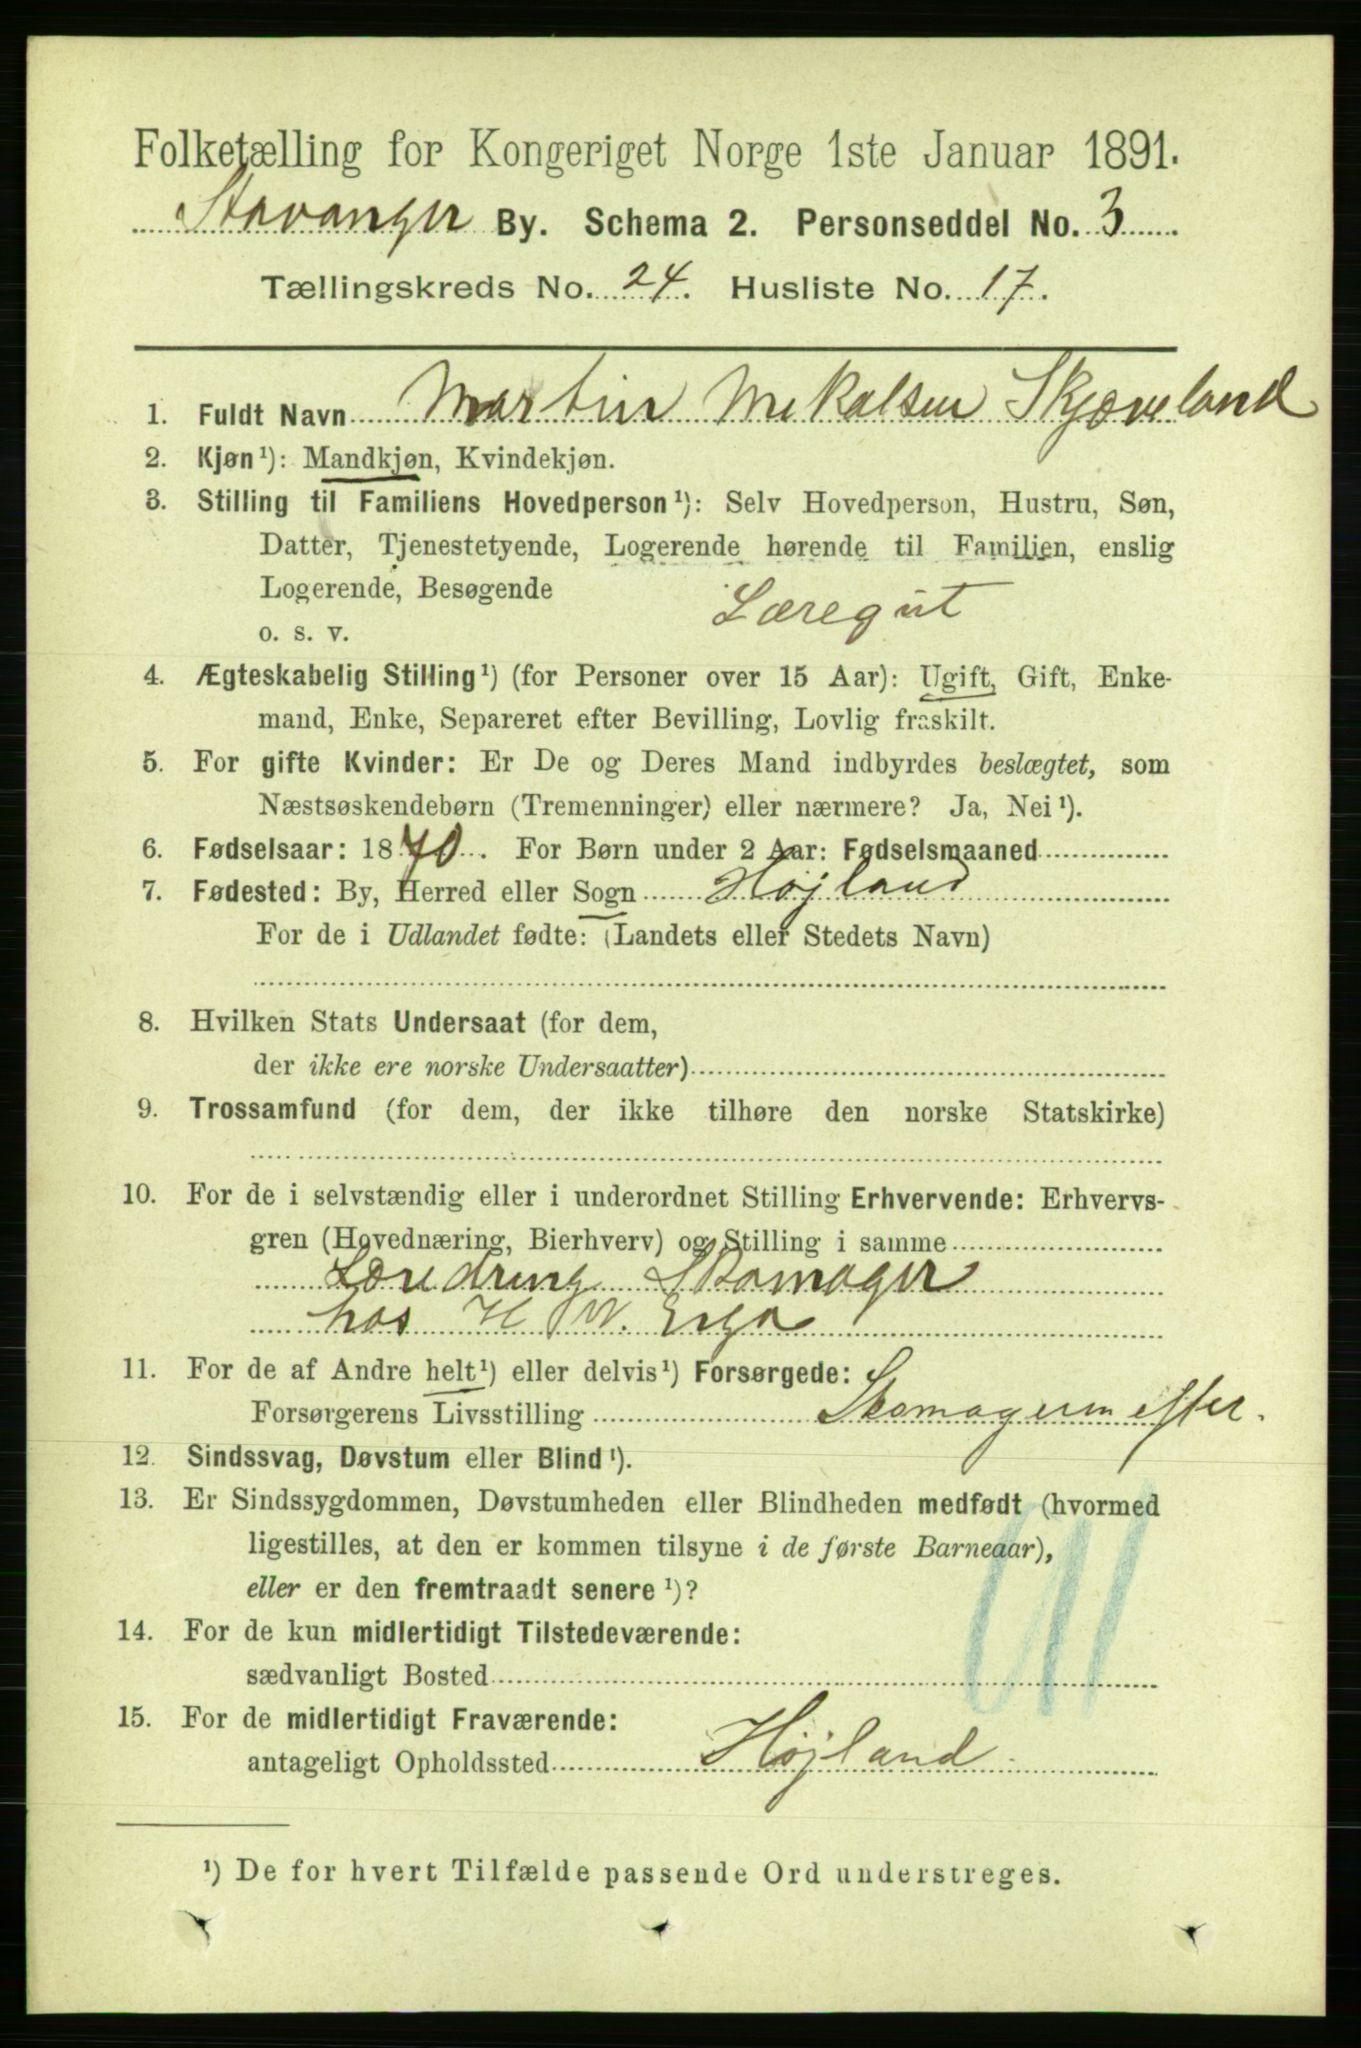 Folketælling for Kongeriget Norge 1ste Januar 1891.
Stavanger By. Schema 2. Personseddel No. 3
Tællingskreds No. 24. Husliste No. 17.
1. Fuldt Navn Martin Mikalsen Skjæveland
2. Kjøn ¹): Mandkjøn, Kvindekjøn.
3. Stilling til Familiens Hovedperson ¹): Selv Hovedperson, Hustru, Søn,
Datter, Tjenestetyende, Logerende hørende til Familien, enslig
Logerende, Besøgende
o. s. v. Læregut
4. Ægteskabelig Stilling ¹) (for Personer over 15 Aar): Ugift, Gift, Enke-
mand, Enke, Separeret efter Bevilling, Lovlig fraskilt.
5. For gifte Kvinder: Er De og Deres Mand indbyrdes beslægtet, som
Næstsøskendebørn (Tremenninger) eller nærmere? Ja, Nei ¹).
6. Fødselsaar: 1870. For Børn under 2 Aar: Fødselsmaaned
7. Fødested: By, Herred eller Sogn Højland
For de i Udlandet fødte: (Landets eller Stedets Navn)
8. Hvilken Stats Undersaat (for dem,
der ikke ere norske Undersaatter)
9. Trossamfund (for dem, der ikke tilhøre den norske Statskirke)
10. For de i selvstændig eller i underordnet Stilling Erhvervende: Erhvervs-
gren (Hovednæring, Bierhverv) og Stilling i samme
Læredreng Skomager
hos H W. Erga
11. For de af Andre helt ¹) eller delvis ¹) Forsørgede:
Forsørgerens Livsstilling Skomagermester.
12. Sindssvag, Døvstum eller Blind ¹).
13. Er Sindssygdommen, Døvstumheden eller Blindheden medfødt (hvormed
ligestilles, at den er kommen tilsyne i de første Barneaar),
eller er den fremtraadt senere ¹)?
14. For de kun midlertidigt Tilstedeværende:
sædvanligt Bosted
15. For de midlertidigt Fraværende:
antageligt Opholdssted Højland.
¹) De for hvert Tilfælde passende Ord understreges.